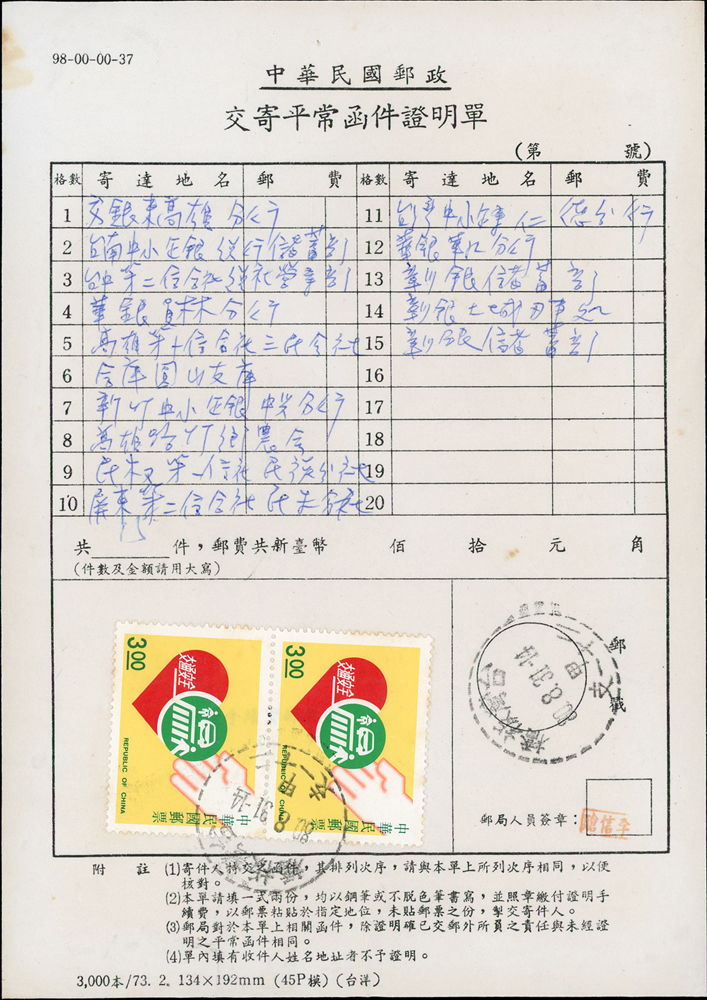 98-00-00-37
中華民國郵政
交寄平常函件證明單
(第 號)
格數 寄達地名 郵費 格數 寄達地名 郵費
1 交銀東高雄分行 11
2 台南中小企銀 12 華銀 分行
3 台中第二信合社 營業部 13 彰銀儲蓄部
4 華銀員林分行 14 彰銀土城
5 高雄第十信合社三民分社 15 彰銀儲蓄部
6 合庫圓山支庫 16
7 新竹中小企銀 分行 17
8 高雄路竹鄉農會 18
9 第一信社民族分社 19
10 屏東第二信合社民生分社 20
共 件,郵費共新臺幣 佰 拾 元 角
(件數及金額請用大寫)
3.00
交通安全
REPUBLIC OF CHINA
中華民國郵票
3.00
交通安全
REPUBLIC OF CHINA
中華民國郵票
80.8.31-14
郵戳
80.8.31-14
郵局人員簽章:
附註 (1)寄件人特交之函件,其排列次序,請與本單上所列次序相同,以便
核對。
(2)本單請填一式兩份,均以鋼筆或不脱色筆書寫,並照章繳付證明手
續費,以郵票粘貼於指定地位,未貼郵票之份,掣交寄件人。
(3)郵局對於本單上相關函件,除證明確已交郵外所員之責任與未經證
明之平常函件相同。
(4)單內填有收件人姓名地址者不予證明。
3,000本/73. 2. 134×192mm (45P模) (台洋)